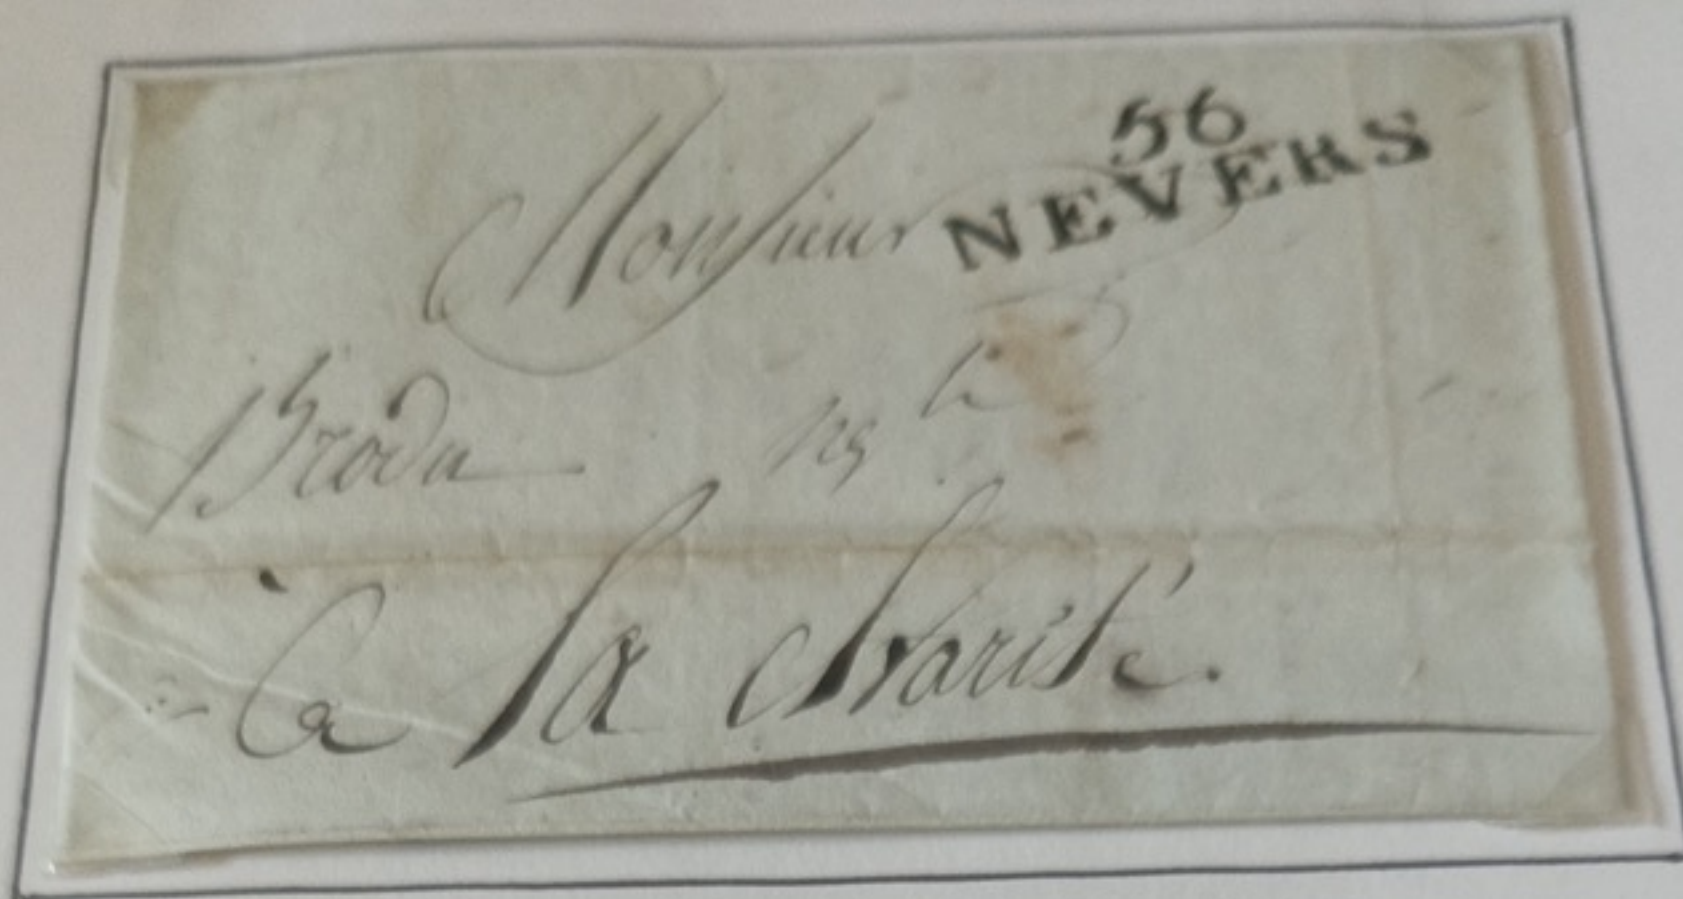 56
NEVERS
Monsieur
Brodu ng
à la charité.